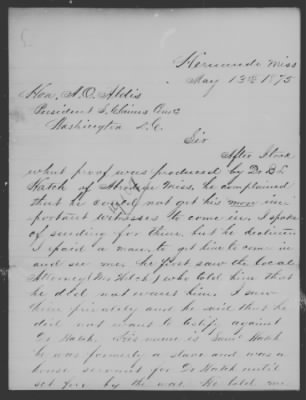 Hernando Miss
May 13th 1875
Hon. A.O. Aldis
President S. Claims Com
Washington D.C.
Sir
After I took
what proof was produced by Dr B L
Hatch of Miss, he complained
that he could not get his more im-
portant witnesses to come in. I spoke
of sending for them, but he declined
I paid a man to get him to come in
and see me he first saw the local
Attorney (Mr. ) who told him that
he did not want him. I saw
him privately and he said that he
did not want to testify against
Dr Hatch. His name is Saml Hatch
he was formerly a slave and was a
house servant for Dr Hatch until
set free by the war. He told me